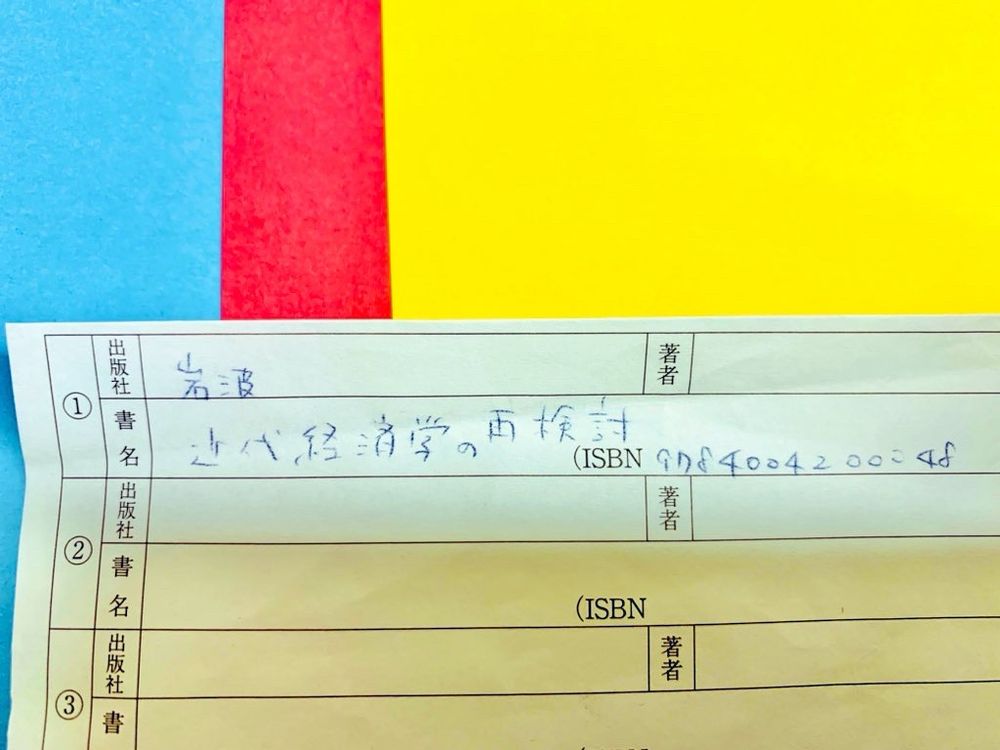 ① 出版社 岩波 著者
書名 近代経済学の再検討 (ISBN 9784004200048
② 出版社 著者
書名 (ISBN
③ 出版社 著者
書